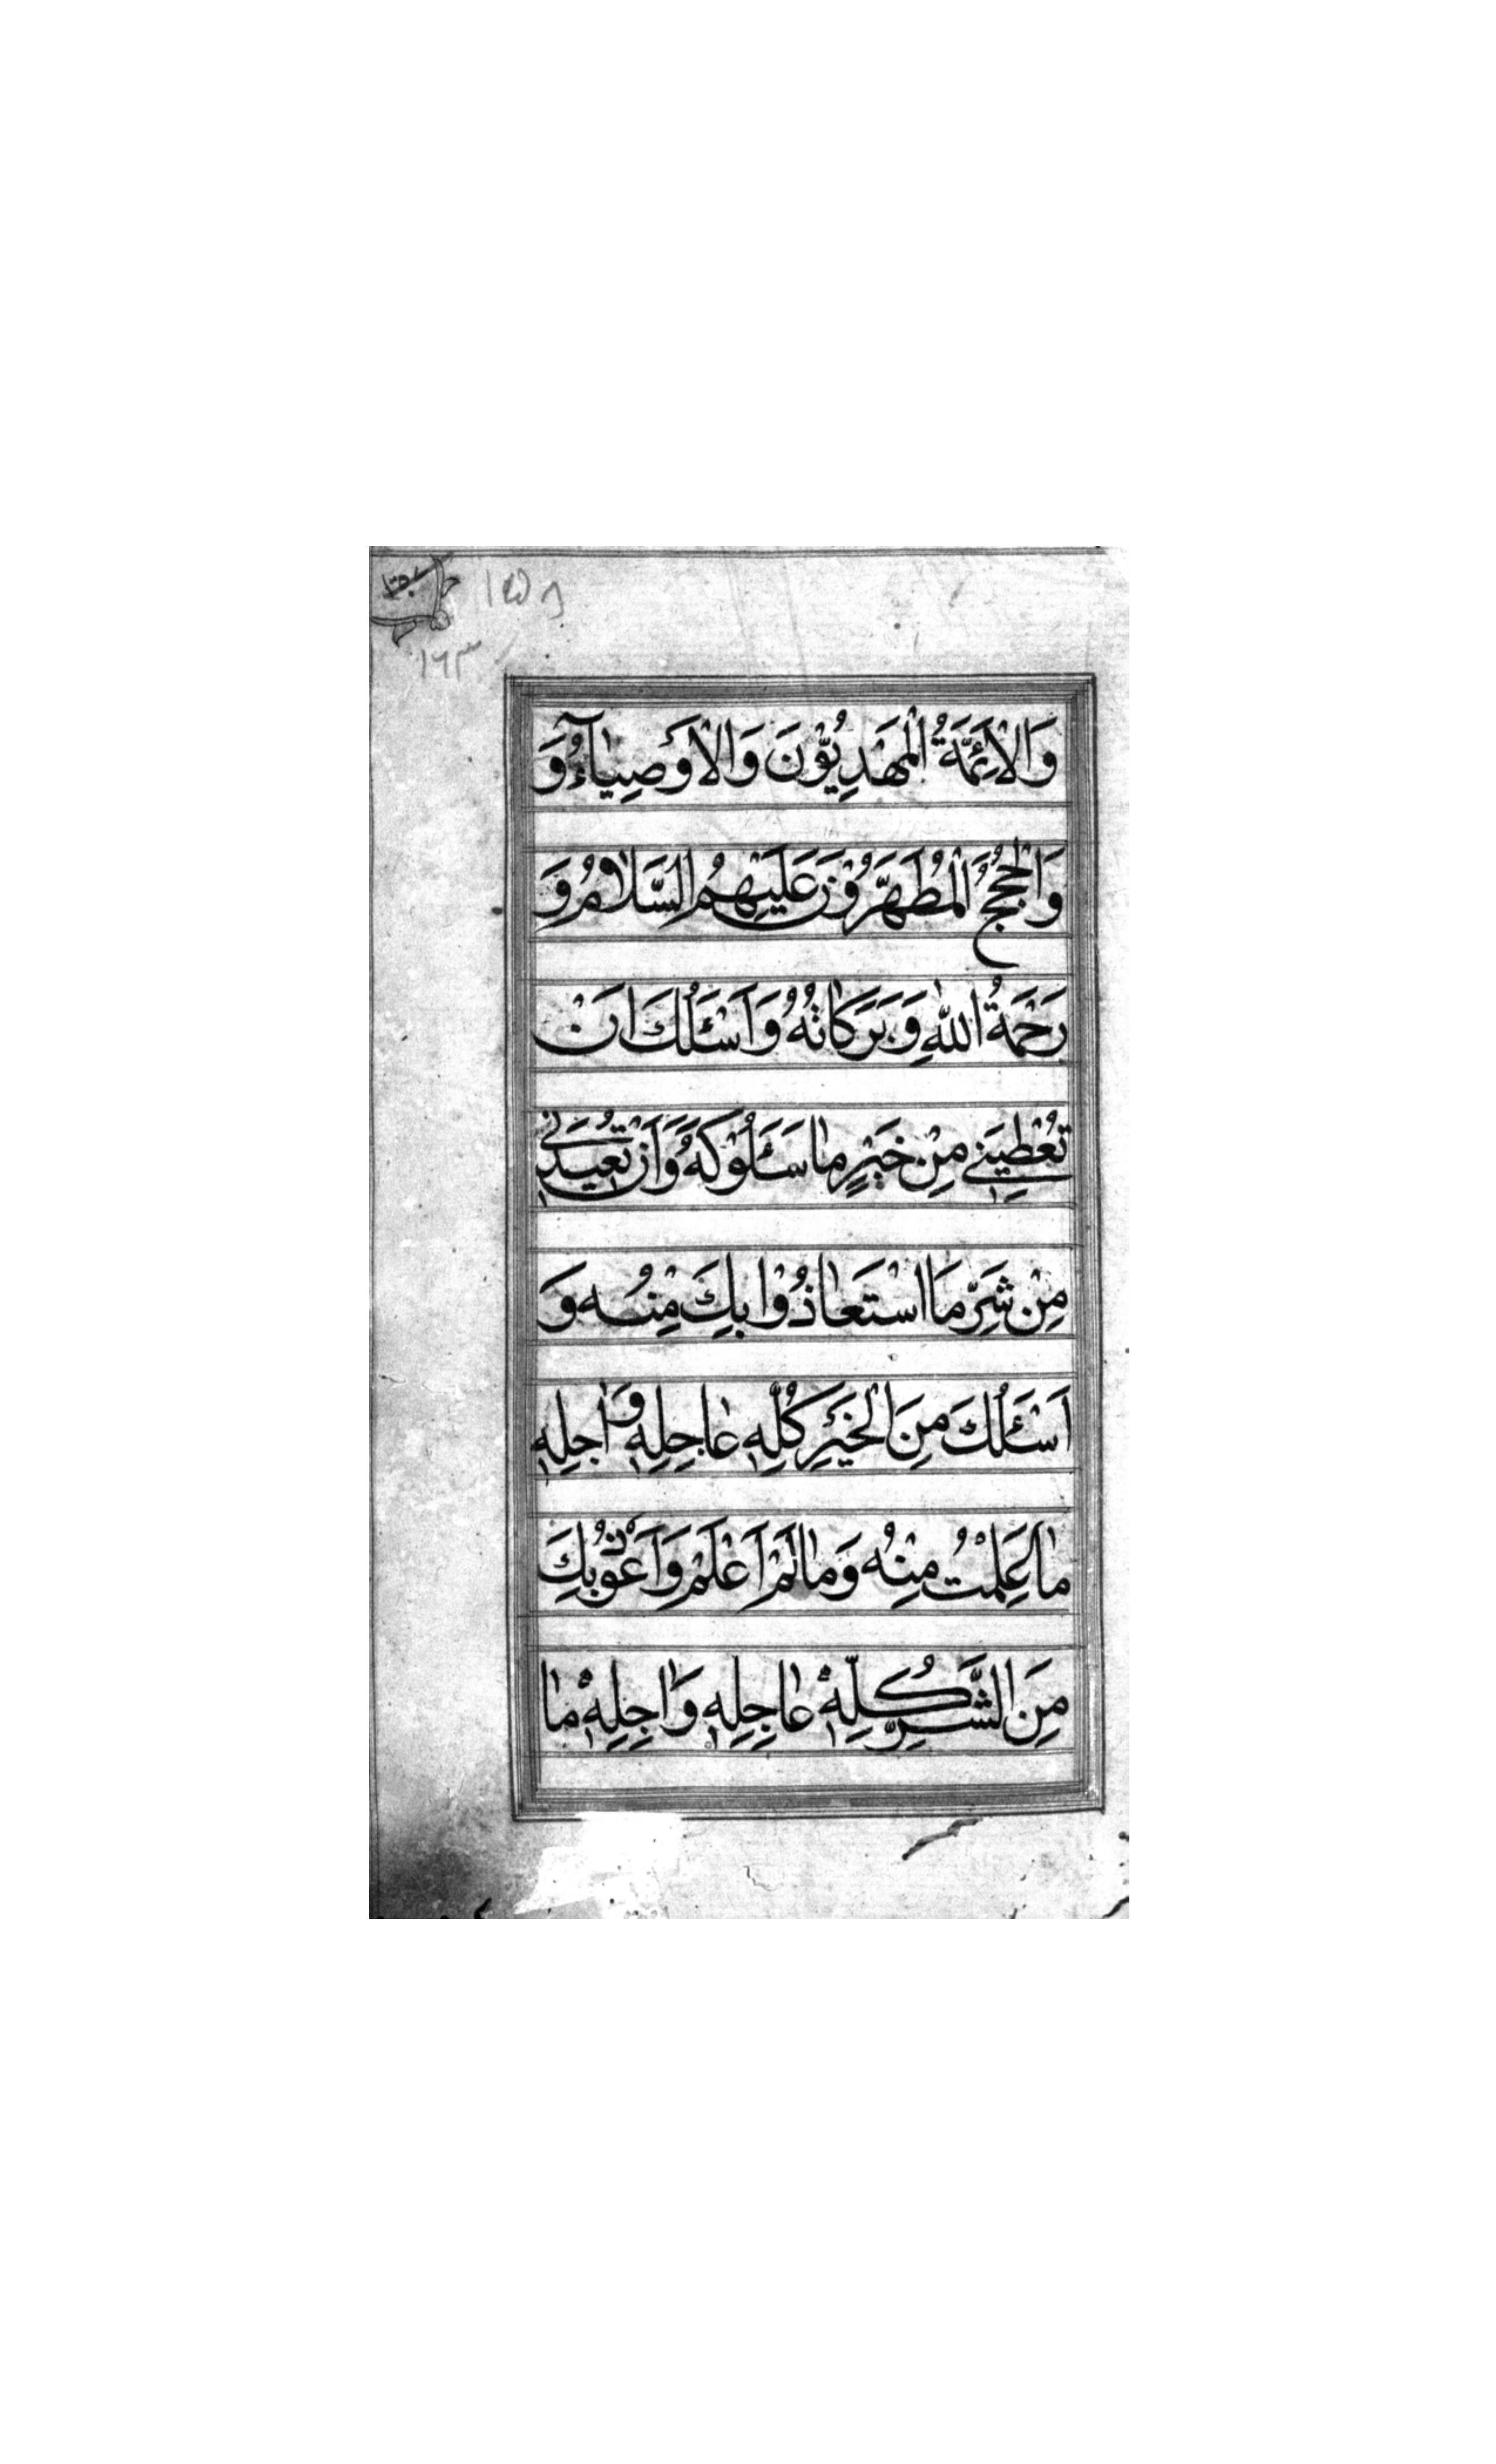 ١٥٨
١٦٣
وَالْاَئِمَّةُ الْمَهْدِيُّوْنَ وَالْاَوْصِيٰٓاءُ وَ
وَالْحُجَجُ الْمُطَهَّرُوْنَ عَلَيْهِمُ السَّلَامُ وَ
رَحْمَةُ اللّٰهِ وَبَرَكَاتُهُ وَاَسْئَلُكَ اَنْ
تُعْطِيَنِيْ مِنْ خَيْرِ مٰا سَئَلُوْكَهُ وَاَنْ تُعِيْذَنِيْ
مِنْ شَرِّ مَا اسْتَعٰاذُوْا بِكَ مِنْهُ وَ
اَسْئَلُكَ مِنَ الْخَيْرِ كُلِّهٖ عٰاجِلِهٖ وَاٰجِلِهٖ
مٰا عَلِمْتُ مِنْهُ وَمٰا لَمْ اَعْلَمْ وَاَعُوْذُ بِكَ
مِنَ الشَّرِّ كُلِّهٖ عٰاجِلِهٖ وَاٰجِلِهٖ مٰا